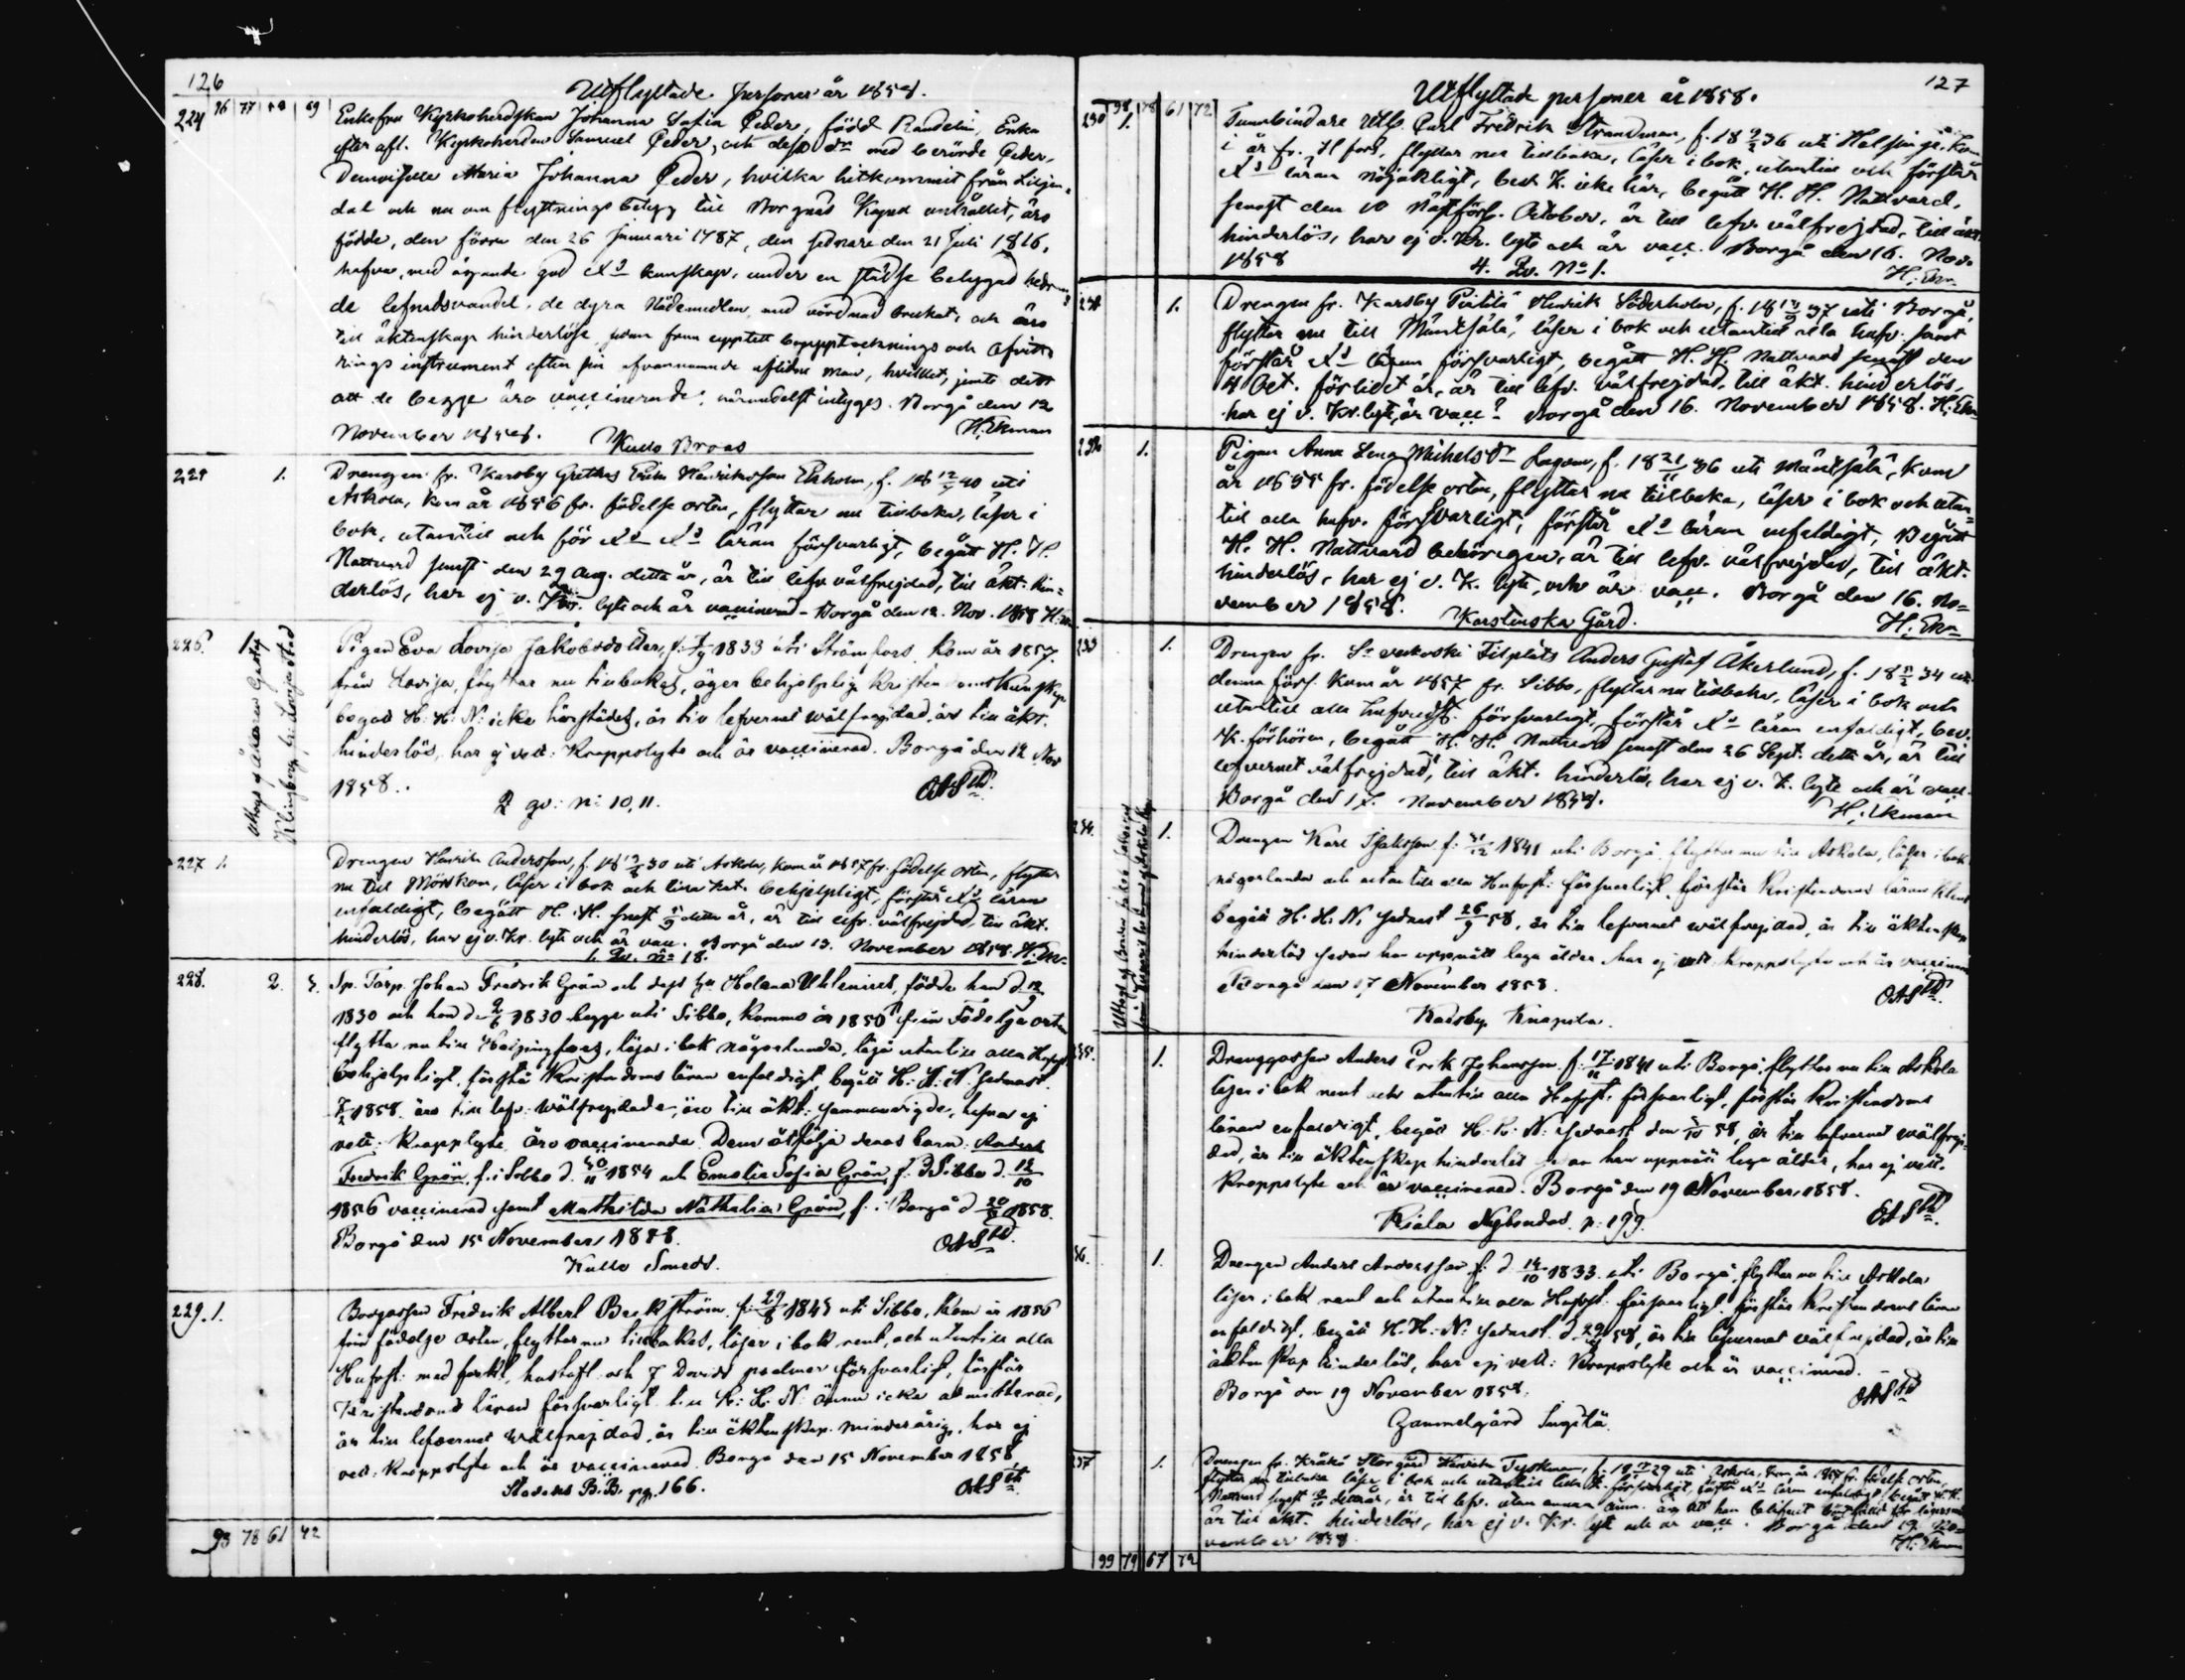 126
Utflyttade personer år 1858.
224 76 77 69
Enkefru Kyrkoherdskan Johanna Sofia Ceder, född Randelin, Enka
efter afl. Kyrkoherden Samuel Ceder, och dess dr med berörde Ceder,
Demoiselle Maria Johanna Ceder, hvilka hitkommit från Liljen-
dal och nu om flyttnings betyg till Borgnäs Kapell anhållit, äro
födde, den förra den 26 Januari 1787, den sednare den 21 Juli 1816,
hafva, med ägande god Xs kunskap, under en städse betygad hedran-
de lefnadsvandel, de dyra Nådemedlen med vördnad brukat, och äro
till äktenskap hinderlöse, sedan förra upptett bouppteknings och afvitt-
rings instrument efter sin ofvannämnde aflidne man, hvilket, jemte det
att de begge äro vaccinerade, närmedelst intyges. Borgå den 12
November 1858. H. Ekman
Kullo Broas
225 1.
Drengen fr. Karsby Grettas Erik Henriksson Ekholm, f. 18 12/7 40 uti
Askola, kom år 1856 fr. födelse orten, flyttar nu tillbaka, läser i
bok, utantill och för Xs Xs läran försvarligt, begått H. H.
Nattvard senast den 29 Aug. detta år, är till lefv. välfrejdad, till äkt. hin-
derlös, har ej v. Kr. lyte och är vaccinerad. Borgå den 12. Nov. 1858 H. Ekm.
226. 1.
Uttogs af åkaren Gustaf
Klingberg från Lovisa stad
Pigan Eva Lovisa Jakobsdotter, f. 1833 uti Strömfors, kom år 1857
från Lovisa, flyttar nu tillbakas, äger behjelplig Kristendomskunskap
begad H. H. N. icke härstädes, är till lefvernet wälfrejdad, är till äkt.
hinderlös, har ej vett. Kroppslyte och är vaccinerad. Borgå den 12 Nov
1858.
2 qv: N: 10, 11.
227 1.
Drengen Henrik Andersson, f. 18 30 uti Askola, kom år 1857 fr. födelse orten, flyttar
nu till Mörskom, läser i bok och lilla kat. behjelpligt, förstår Xs läran
enfaldigt, begått H. H. senast detta år, är till lefv. välfrejdad, till äkt.
hinderlös, har ej v. Kr. lyte och är vacc. Borgå den 13. November 1858. H. Ekm
1. Qv. No 18.
228. 2. 3.
Sp. Torp. Johan Fredrik Grön och dess hu Helena Uhlenius, födde han d. 12
1830 och hon d. 2/6 1830 begge uti Sibbo, kommo år 1850 från Födelse orten
flytta nu till Helsingfors, läsa i bok någorlunda, läsa utantill alla Hufvst.
behjelpligt, förstå Kristendoms läran enfaldigt, begått H. H. N. sednast
1858. äro till lefv: wälfrejdade, äro till äkt: sammanvigde, hafva ej
vett: Kroppslyte, äro vaccinerade. Dem åtfölja deras barn Anders
Fredrik Grön, f. i Sibbo d. 30/11 1854 och Emelie Sofia Grön, f. i Sibbo d. 12/10
1856 vaccinerad samt Mathilda Nathalia Grön, f. i Borgå d 20/8 1858.
Borgå den 15 November 1858.
Kullo Smeds.
229. 1.
Bongossen Fredrik Albert Beckström, f. 29/8 1845 uti Sibbo, kom år 1856
från födelse orten, flyttar nu tillbakas, läser i bok rent, och utantill alla
Hufvst: med forkl. hustafl. och 7 Davids psalmer försvarligt, förstår
Kristendoms läran försvarligt, till H: H. N: ännu icke admitterad,
är till lefvernet wälfrejdad, är till äktenskap minderårig, har ej
vett: Kroppslyte och är vaccinerad. Borgå den 15 November 1858
Stadens B.B. pg. 166.
93 78 61 42
127
Utflyttade personer år 1858.
230 98 78 61 72
1.
Tunnbindare Carl Fredrik Strandman, f. 18 9/2 36 uti Helsinge. Kom
i år fr. H fors, flyttar nu tillbaka, läser i bok, utantill och förstår
Xs läran nöjaktigt, bev. K. icke här, begått H. H. Nattvard
senast den 10 näst förfl. October, är till lefv. välfrejdad, till äkt.
hinderlös, har ej v. Kr. lyte och är vacc. Borgå den 16. Nov.
1858 H. Ekm.
4. Qv. No 1.
231 1.
Drengen fr. Karsby Pietilä Henrik Söderholm, f. 18 37 uti Borgå,
flyttar nu till Mäntsälä, läser i bok och utantill alla hufv. samt
förstår Xs läran försvarligt, begått H. H. Nattvard senast den
4 Oct. förlidet år, är till lefv. välfrejdad, till äkt. hinderlös,
har ej v. Kr. lyte, är vacc. Borgå den 16. November 1858. H. Ekm
232 1.
Pigan Anna Lena Michelsdr Lagom, f. 18 21/11 36 uti Mäntsälä, kom
år 1855 fr. födelse orten, flyttar nu tillbaka, läser i bok och utan-
till alla hufv. försvarligt, förstår Xs läran enfaldigt, Begått
H. H. Nattvard behörigen, är till lefv. välfrejdad, till äkt.
hinderlös, har ej v. K. lyte, och är vacc. Borgå den 16. No-
vember 1858. H. Ekm
Karstenska Gård.
233 1.
Drengen fr. Filpläts Anders Gustaf Åkerlund, f. 18 34 uti
denna förs. kom år 1857 fr. Sibbo, flyttar nu tillbaka, läser i bok och
utantill alla hufvudst. försvarligt, förstår Xs läran enfaldigt, bev.
K. förhören, begått H. H. Nattvard senast den 26 Sept. detta år, är till
lefvernet välfrejdad, till äkt. hinderlös, har ej v. K. lyte och är vacc.
Borgå den 17. November 1858. H. Ekman
234. 1.
Drengen Karl Isaksson f. 1841 uti Borgå, flyttar nu till Askola, läser i bok
någorlunda och utantill alla Hufvst: försvarligt, förstår Kristendoms läran klent
begått H. H. N. sednast 26/9 58, är till lefvernet wälfrejdad, är till äktenskap
hinderlös sedan han uppnått laga ålder, har ej vett. kroppslyte och är vaccinerad
Borgå den 17 November 1858.
Karsby Knapila.
235. 1.
Drenggossen Anders Erik Johansson f. 17/11 1841 uti Borgå, flyttar nu till Askola
läser i bok rent och utantill alla Hufvst. försvarligt, förstår Kristendoms
läran enfaldigt, begått H. H. N: sednast den 3/10 58, är till lefvernet wälfrej-
dad, är till äktenskap hinderlös sedan han uppnått laga ålder, har ej vett.
Kroppslyte och är vaccinerad. Borgå den 19 November 1858.
Kiala Nybondas. p: 199.
36. 1.
Drengen Anders Andersson f. d. 14/10 1833 uti Borgå, flyttar nu till Askola
läser i bok rent och utantill alla Hufvst. försvarligt, förstår Kristendoms läran
enfaldigt, begått H. H. N: sednast d. 29 58, är till lefvernet välfrejdad, är till
äktenskap hinderlös, har ej vett: Kroppslyte och är vaccinerad.
Borgå den 19 November 1858.
Gammelgård Sugitä
237 1.
Drengen fr. Kråkö Storgård Henrik Tyskman, f. 18 29 uti Askola, kom år 1857 fr. födelse orten,
flyttar nu tillbaka, läser i bok och utantill försvarligt, förstår Xs läran enfaldigt, begått H. H.
Nattvard senast detta år, är till lefv. utan annan anm. än att han blifvit
är till äkt. hinderlös, har ej v. Kr. lyte och är vacc. Borgå den 19. No-
vember 1858. H. Ekman
99 79 67 72